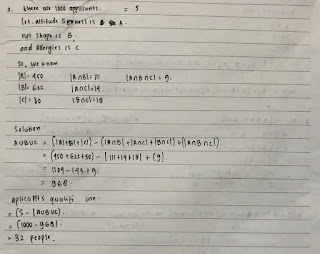 2. there are 1000 applicants. = S
let. altitude sickness is A.
not shape is B.
and Allergies is C
So, we know
|A| = 450 |A∩B| = 111 |A∩B∩C| = 9.
|B| = 622 |A∩C| = 14
|C| = 30 |B∩C| = 18
Solution :
AUBUC = (|A|+|B|+|C|) - (|A∩B| + |A∩C| + |B∩C|) + (|A∩B∩C|
= (450 + 622 + 30) - (111 + 14 + 18) + (9).
= 1102 - 143 + 9.
= 968.
aplicants qualifi are
= (S - |AUBUC).
= (1000 - 968).
= 32 people.